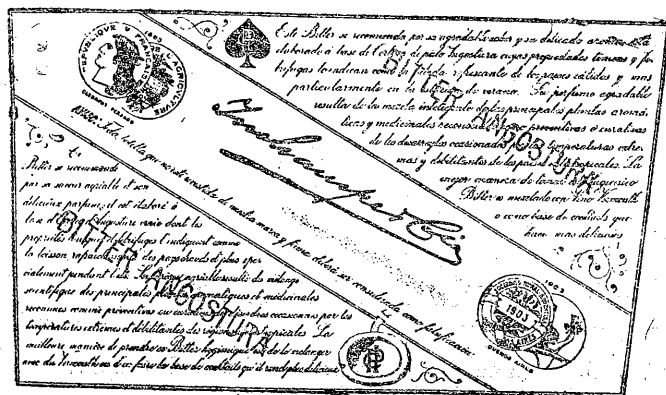 Este Bitter se recomienda por su agradable sabor y su delicado aroma. Está
elaborado a base de Corteza de palo Angostura cuyas propiedades tónicas y fe-
brífugas lo indican como la bebida refrescante de los países cálidos y mas
particularmente en la estación de verano. Su perfume agradable
resulta de la mezcla inteligente de las principales plantas aromá-
ticas y medicinales reconocidas como preventivas ó curativas
de los desarreglos ocasionados por las temperaturas extre-
mas y debilitantes de los países tropicales. La
mejor manera de tomar este higiénico
Bitter es mezclado con Vino Vermouth
o como base de cocktails que
hacen mas deliciosos
BITTER ANGOSTURA
REPUBLIQUE FRANÇAISE
AGRICULTURE
1903
Aviso: Toda botella que no esté revestida de nuestra marca y firma deberá ser considerada como falsificación
Ce
Bitter se recommande
par sa saveur agréable et son
délicieux parfum, il est élaboré à
base d'écorce d'Angusture vraie dont les
propriétés toniques et fébrifuges l'indiquent comme
la boisson rafraîchissante des pays chauds et plus spé-
cialement pendant l'été. Son arôme agréable résulte du mélange
scientifique des principales plantes aromatiques et médicinales
reconnues comme préventives ou curatives des désordres occasionnés par les
températures extrêmes et débilitantes des régions tropicales. La
meilleure manière de prendre ce Bitter hygiénique est de le mélanger
avec du Vermouth ou d'en faire la base de cocktails qu'il rend plus délicieux
BITTER ANGOSTURA
1903
1903
BUENOS AIRES